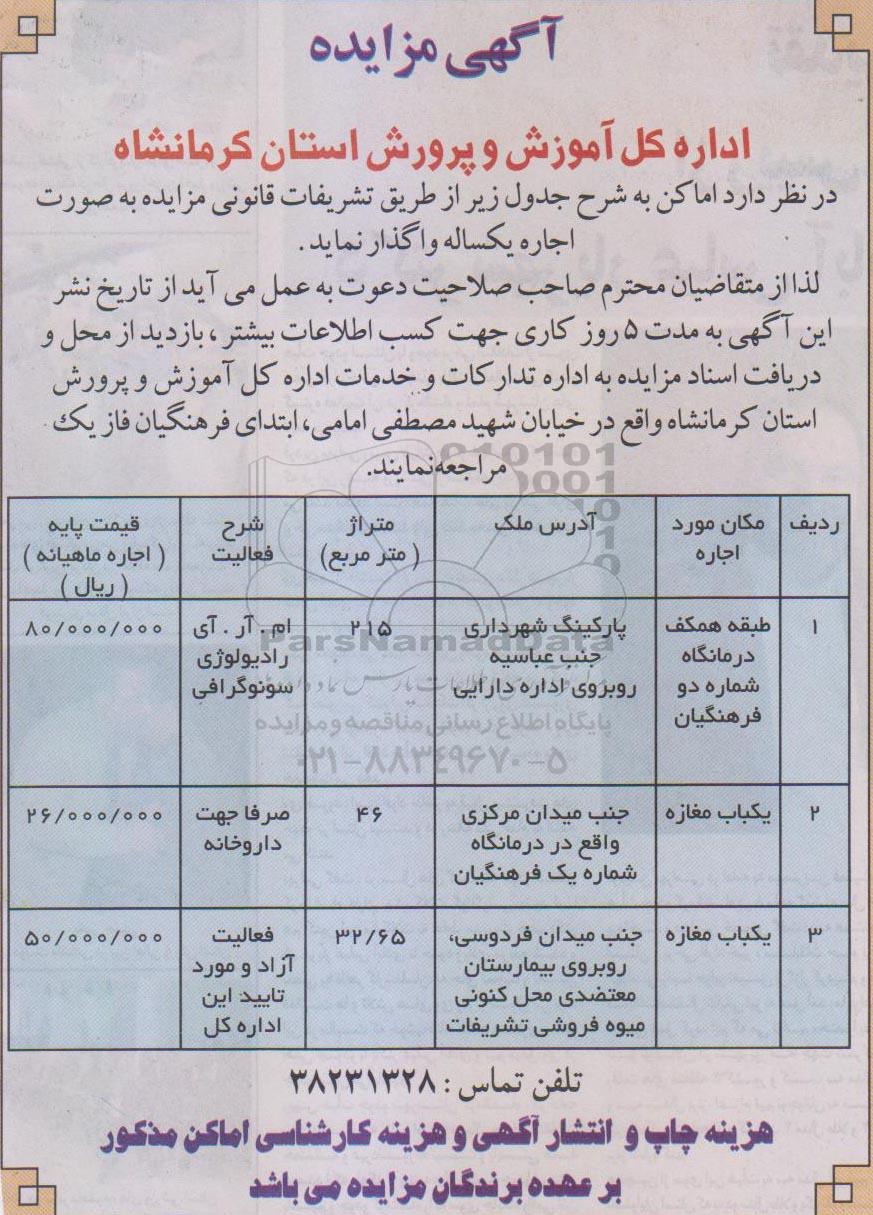 آگهی مزایده
اداره کل آموزش و پرورش استان کرمانشاه
در نظر دارد اماکن به شرح جدول زیر از طریق تشریفات قانونی مزایده به صورت
اجاره یکساله واگذار نماید .
لذا از متقاضیان محترم صاحب صلاحیت دعوت به عمل می آید از تاریخ نشر
این آگهی به مدت ۵ روز کاری جهت کسب اطلاعات بیشتر ، بازدید از محل و
دریافت اسناد مزایده به اداره تدارکات و خدمات اداره کل آموزش و پرورش
استان کرمانشاه واقع در خیابان شهید مصطفی امامی، ابتدای فرهنگیان فاز یک
مراجعه نمایند.
ردیف
مکان مورد
اجاره
آدرس ملک
متراژ
( متر مربع)
شرح
فعالیت
قیمت پایه
( اجاره ماهیانه )
( ریال )
۱
طبقه همکف
درمانگاه
شماره دو
فرهنگیان
پارکینگ شهرداری
جنب عباسیه
روبروی اداره دارایی
۲۱۵
ام . آر . آی
رادیولوژی
سونوگرافی
۸۰/۰۰۰/۰۰۰
۲
یکباب مغازه
جنب میدان مرکزی
واقع در درمانگاه
شماره یک فرهنگیان
۴۶
صرفا جهت
داروخانه
۲۶/۰۰۰/۰۰۰
۳
یکباب مغازه
جنب میدان فردوسی،
روبروی بیمارستان
معتضدی محل کنونی
میوه فروشی تشریفات
۳۲/۶۵
فعالیت
آزاد و مورد
تایید این
اداره کل
۵۰/۰۰۰/۰۰۰
ParsNamadData
پایگاه اطلاع رسانی مناقصه و مزایده
۰۲۱-۸۸۳۴۹۶۷۰-۵
تلفن تماس : ۳۸۲۳۱۳۲۸
هزینه چاپ و انتشار آگهی و هزینه کارشناسی اماکن مذکور
بر عهده برندگان مزایده می باشد